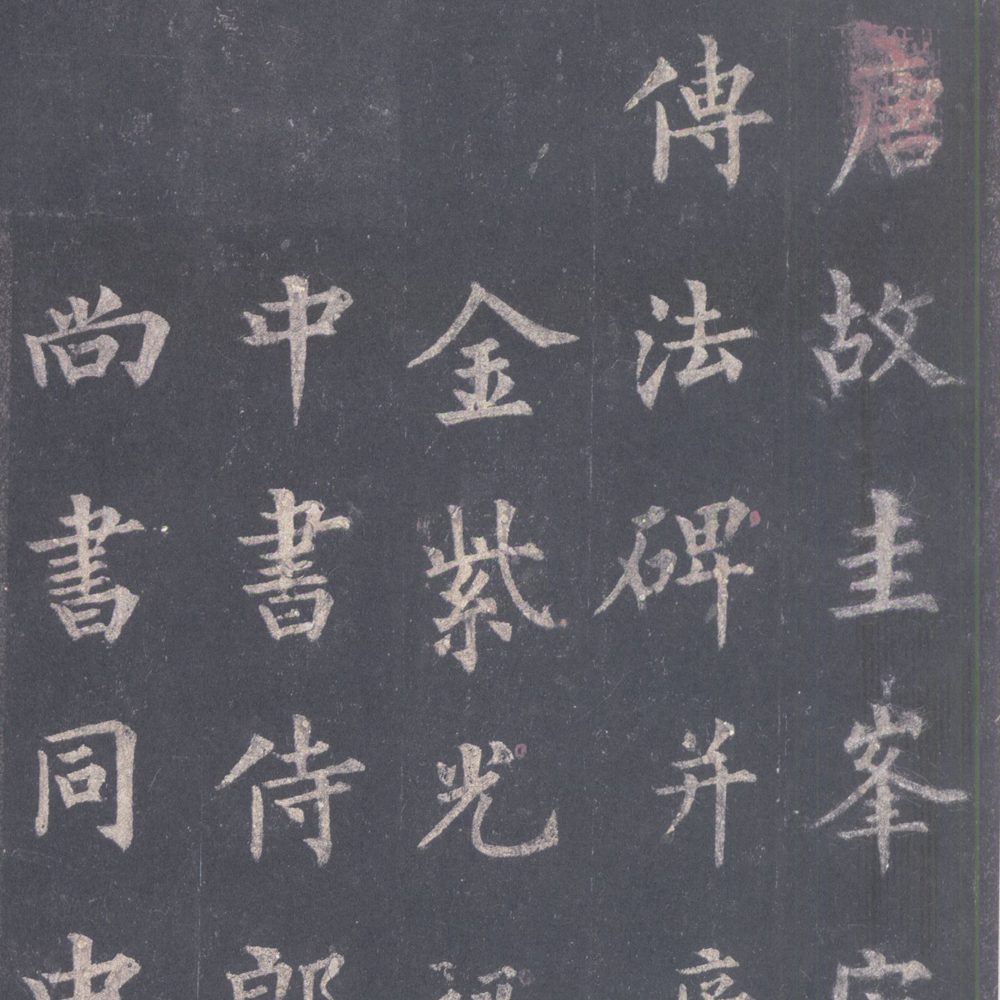 唐故圭峯定
傳法碑并序
金紫光祿
中書侍郎
尚書同中